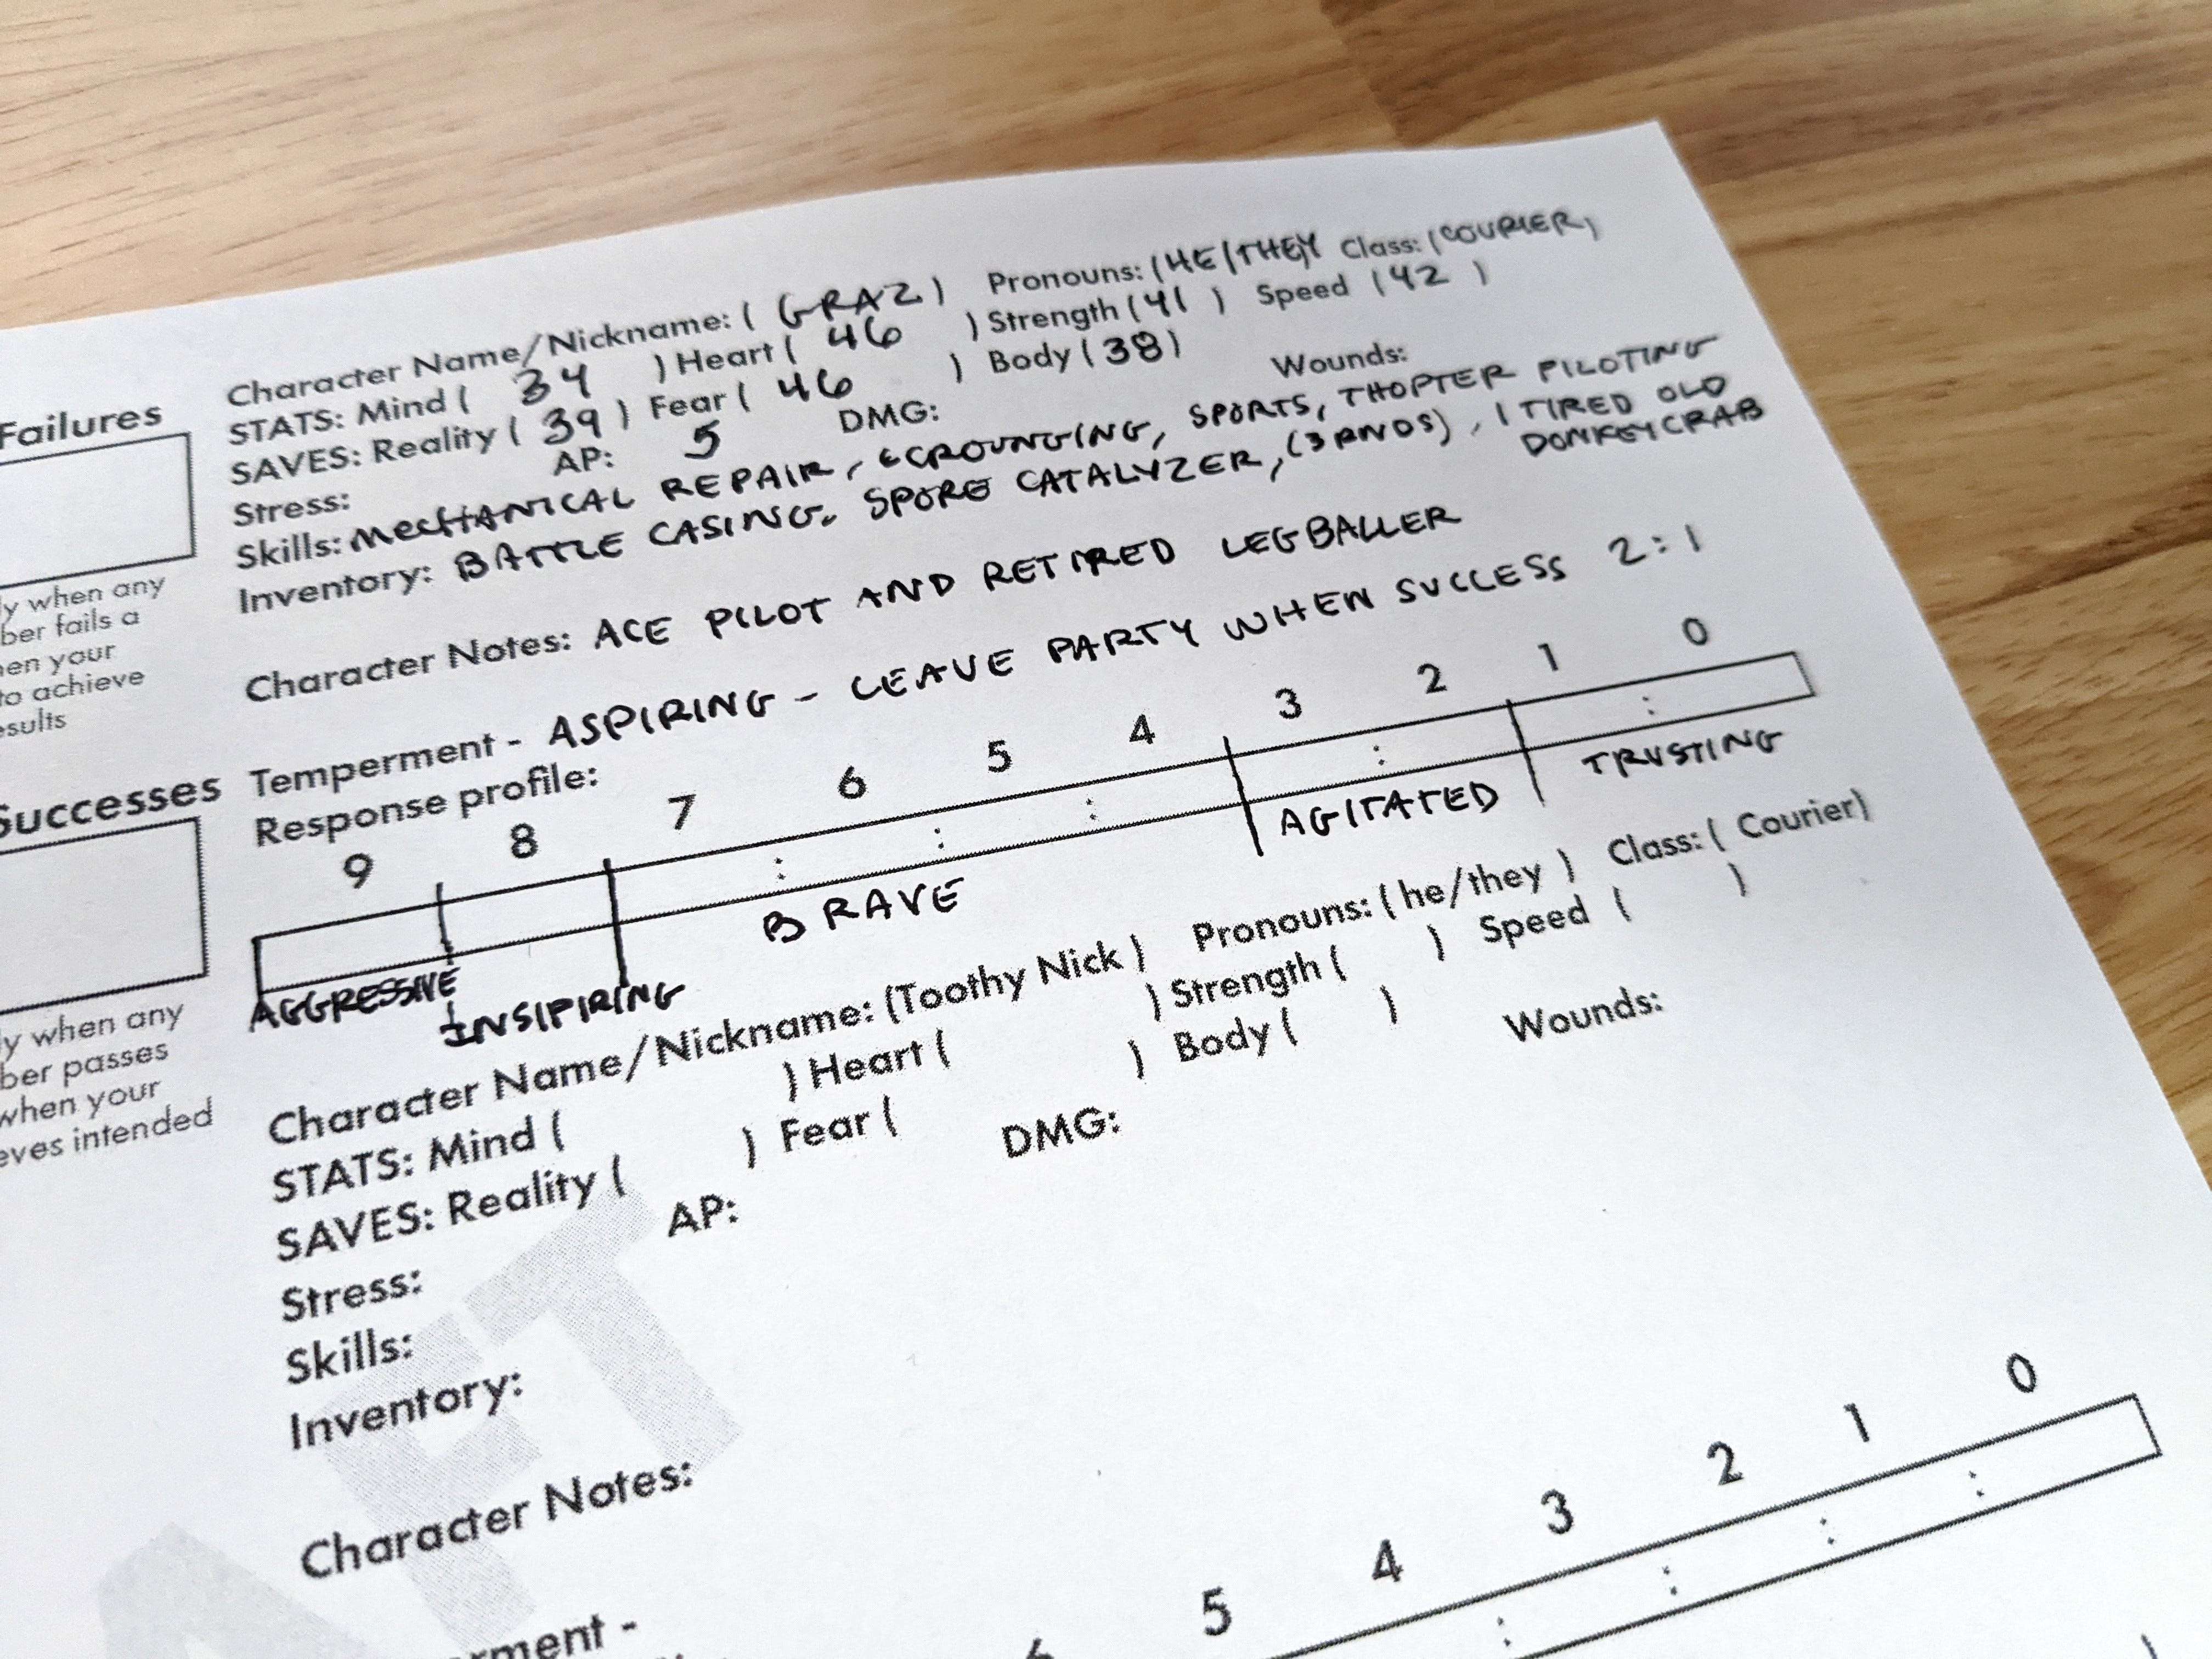 Failures
y when any
ber fails a
en your
to achieve
esults
Successes
y when any
ber passes
when your
eves intended
Character Name/Nickname: ( GRAZ ) Pronouns: (HE/THEY Class: (COURIER)
STATS: Mind ( 34 ) Heart ( 46 ) Strength (41 ) Speed (42 )
SAVES: Reality ( 39 ) Fear ( 46 ) Body (38)
Stress: AP: 5 DMG: Wounds:
Skills: MECHANICAL REPAIR, SCROUNGING, SPORTS, THOPTER PILOTING
Inventory: BATTLE CASING, SPORE CATALYZER, (3 RNDS), 1 TIRED OLD
DONKEYCRAB
Character Notes: ACE PILOT AND RETIRED LEGBALLER
Temperment - ASPIRING - LEAVE PARTY WHEN SUCCESS 2:1
Response profile:
9 8 7 6 5 4 3 2 1 0
AGGRESSIVE INSIPIRING BRAVE AGITATED TRUSTING
Character Name/Nickname: (Toothy Nick ) Pronouns: (he/they ) Class: ( Courier)
STATS: Mind ( ) Heart ( ) Strength ( ) Speed ( )
SAVES: Reality ( ) Fear ( ) Body ( )
Stress: AP: DMG: Wounds:
Skills:
Inventory:
Character Notes:
erment -
5 4 3 2 1 0